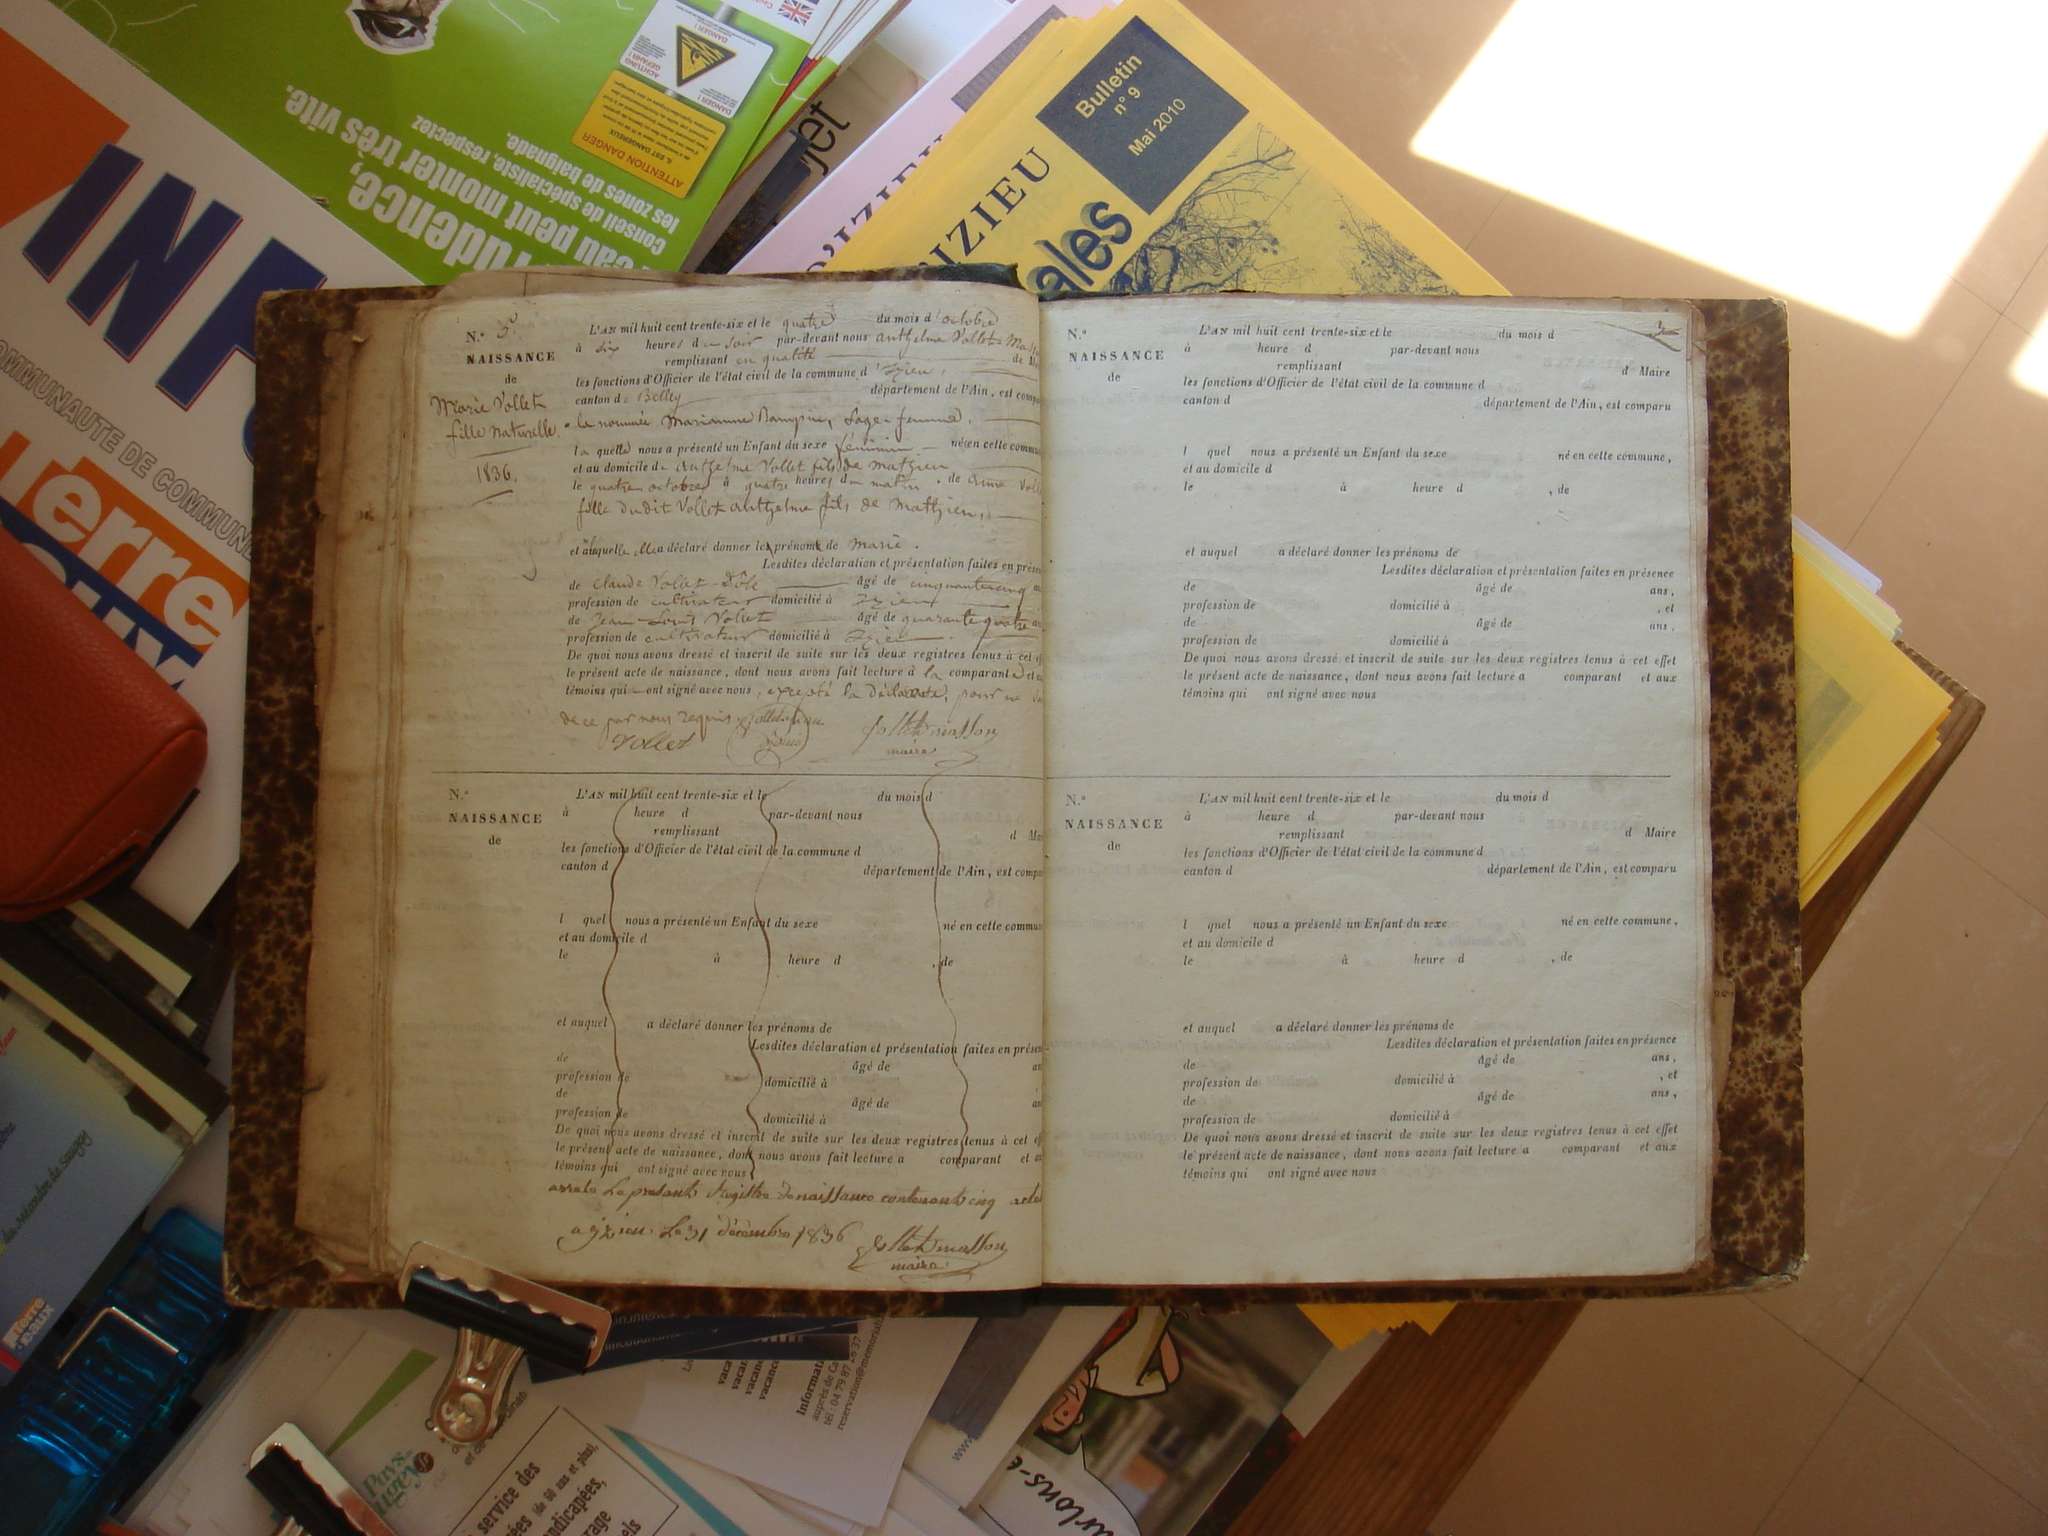 INF
COMMUNAUTE DE COMMUNE
Terre
d'eaux
rudence,
l'eau peut monter très vite.
Conseil de spécialiste, respectez
les zones de baignade.
ATTENTION DANGER
IL EST DANGEREUX
DANGER !
ACHTUNG
GEFAHR !
DANGER !
jet
D'IZIEU
IZIEU
ales
Bulletin
n° 9
Mai 2010
N.° 5.
NAISSANCE
de
Marie Vollet
fille naturelle.
1836.
L'AN mil huit cent trente-six et le quatre du mois d'octobre
à six heures du soir par-devant nous anthelme Vollet Mas
remplissant en qualité de M
les fonctions d'Officier de l'état civil de la commune d'izieu,
canton de Belley département de l'Ain, est compa
la nommée Marianne Sage-femme,
laquelle nous a présenté un Enfant du sexe féminin né en cette commu
et au domicile de Anthelme Vollet fils de mathieu
le quatre octobre à quatre heures du matin, de anne Voll
fille dudit Vollet anthelme fils de Mathieu,
et auquel elle a déclaré donner les prénoms de marie.
Lesdites déclaration et présentation faites en prése
de Claude Vollet Dôle âgé de cinquante cinq an
profession de cultivateur domicilié à Izieu
de Jean-Louis Vollet âgé de quarante quatre an
profession de cultivateur domicilié à Izieu.
De quoi nous avons dressé et inscrit de suite sur les deux registres tenus à cet ef
le présent acte de naissance, dont nous avons fait lecture à la comparante et a
témoins qui ont signé avec nous, excepté la déclarante, pour ne
de ce par nous requis.
Vollet
Vollet masson
maire
N.°
NAISSANCE
de
L'AN mil huit cent trente-six et le du mois d
à heure d par-devant nous
remplissant d Mai
les fonctions d'Officier de l'état civil de la commune d
canton d département de l'Ain, est compa
l quel nous a présenté un Enfant du sexe né en cette commu
et au domicile d
le à heure d , de
et auquel a déclaré donner les prénoms de
Lesdites déclaration et présentation faites en présen
de âgé de an
profession de domicilié à
de âgé de an
profession de domicilié à
De quoi nous avons dressé et inscrit de suite sur les deux registres tenus à cet ef
le présent acte de naissance, dont nous avons fait lecture a comparant et a
témoins qui ont signé avec nous
arrete le present Registre de naissance contenant cinq acte
a yzieu le 31 décembre 1836
Vollet masson
maire
N.°
NAISSANCE
de
L'AN mil huit cent trente-six et le du mois d
à heure d par-devant nous
remplissant d Maire
les fonctions d'Officier de l'état civil de la commune d
canton d département de l'Ain, est comparu
l quel nous a présenté un Enfant du sexe né en cette commune,
et au domicile d
le à heure d , de
et auquel a déclaré donner les prénoms de
Lesdites déclaration et présentation faites en présence
de âgé de ans,
profession de domicilié à , et
de âgé de ans,
profession de domicilié à
De quoi nous avons dressé et inscrit de suite sur les deux registres tenus à cet effet
le présent acte de naissance, dont nous avons fait lecture a comparant et aux
témoins qui ont signé avec nous
N.°
NAISSANCE
de
L'AN mil huit cent trente-six et le du mois d
à heure d par-devant nous
remplissant d Maire
les fonctions d'Officier de l'état civil de la commune d
canton d département de l'Ain, est comparu
l quel nous a présenté un Enfant du sexe né en cette commune,
et au domicile d
le à heure d , de
et auquel a déclaré donner les prénoms de
Lesdites déclaration et présentation faites en présence
de âgé de ans,
profession de domicilié à , et
de âgé de ans,
profession de domicilié à
De quoi nous avons dressé et inscrit de suite sur les deux registres tenus à cet effet
le présent acte de naissance, dont nous avons fait lecture a comparant et aux
témoins qui ont signé avec nous
Terre
d'eaux
Pays
service des
(de 60 ans et plus,
Informat
auprès de Ca
tél : 04 79 87 26 37
reservation@memorial
www.